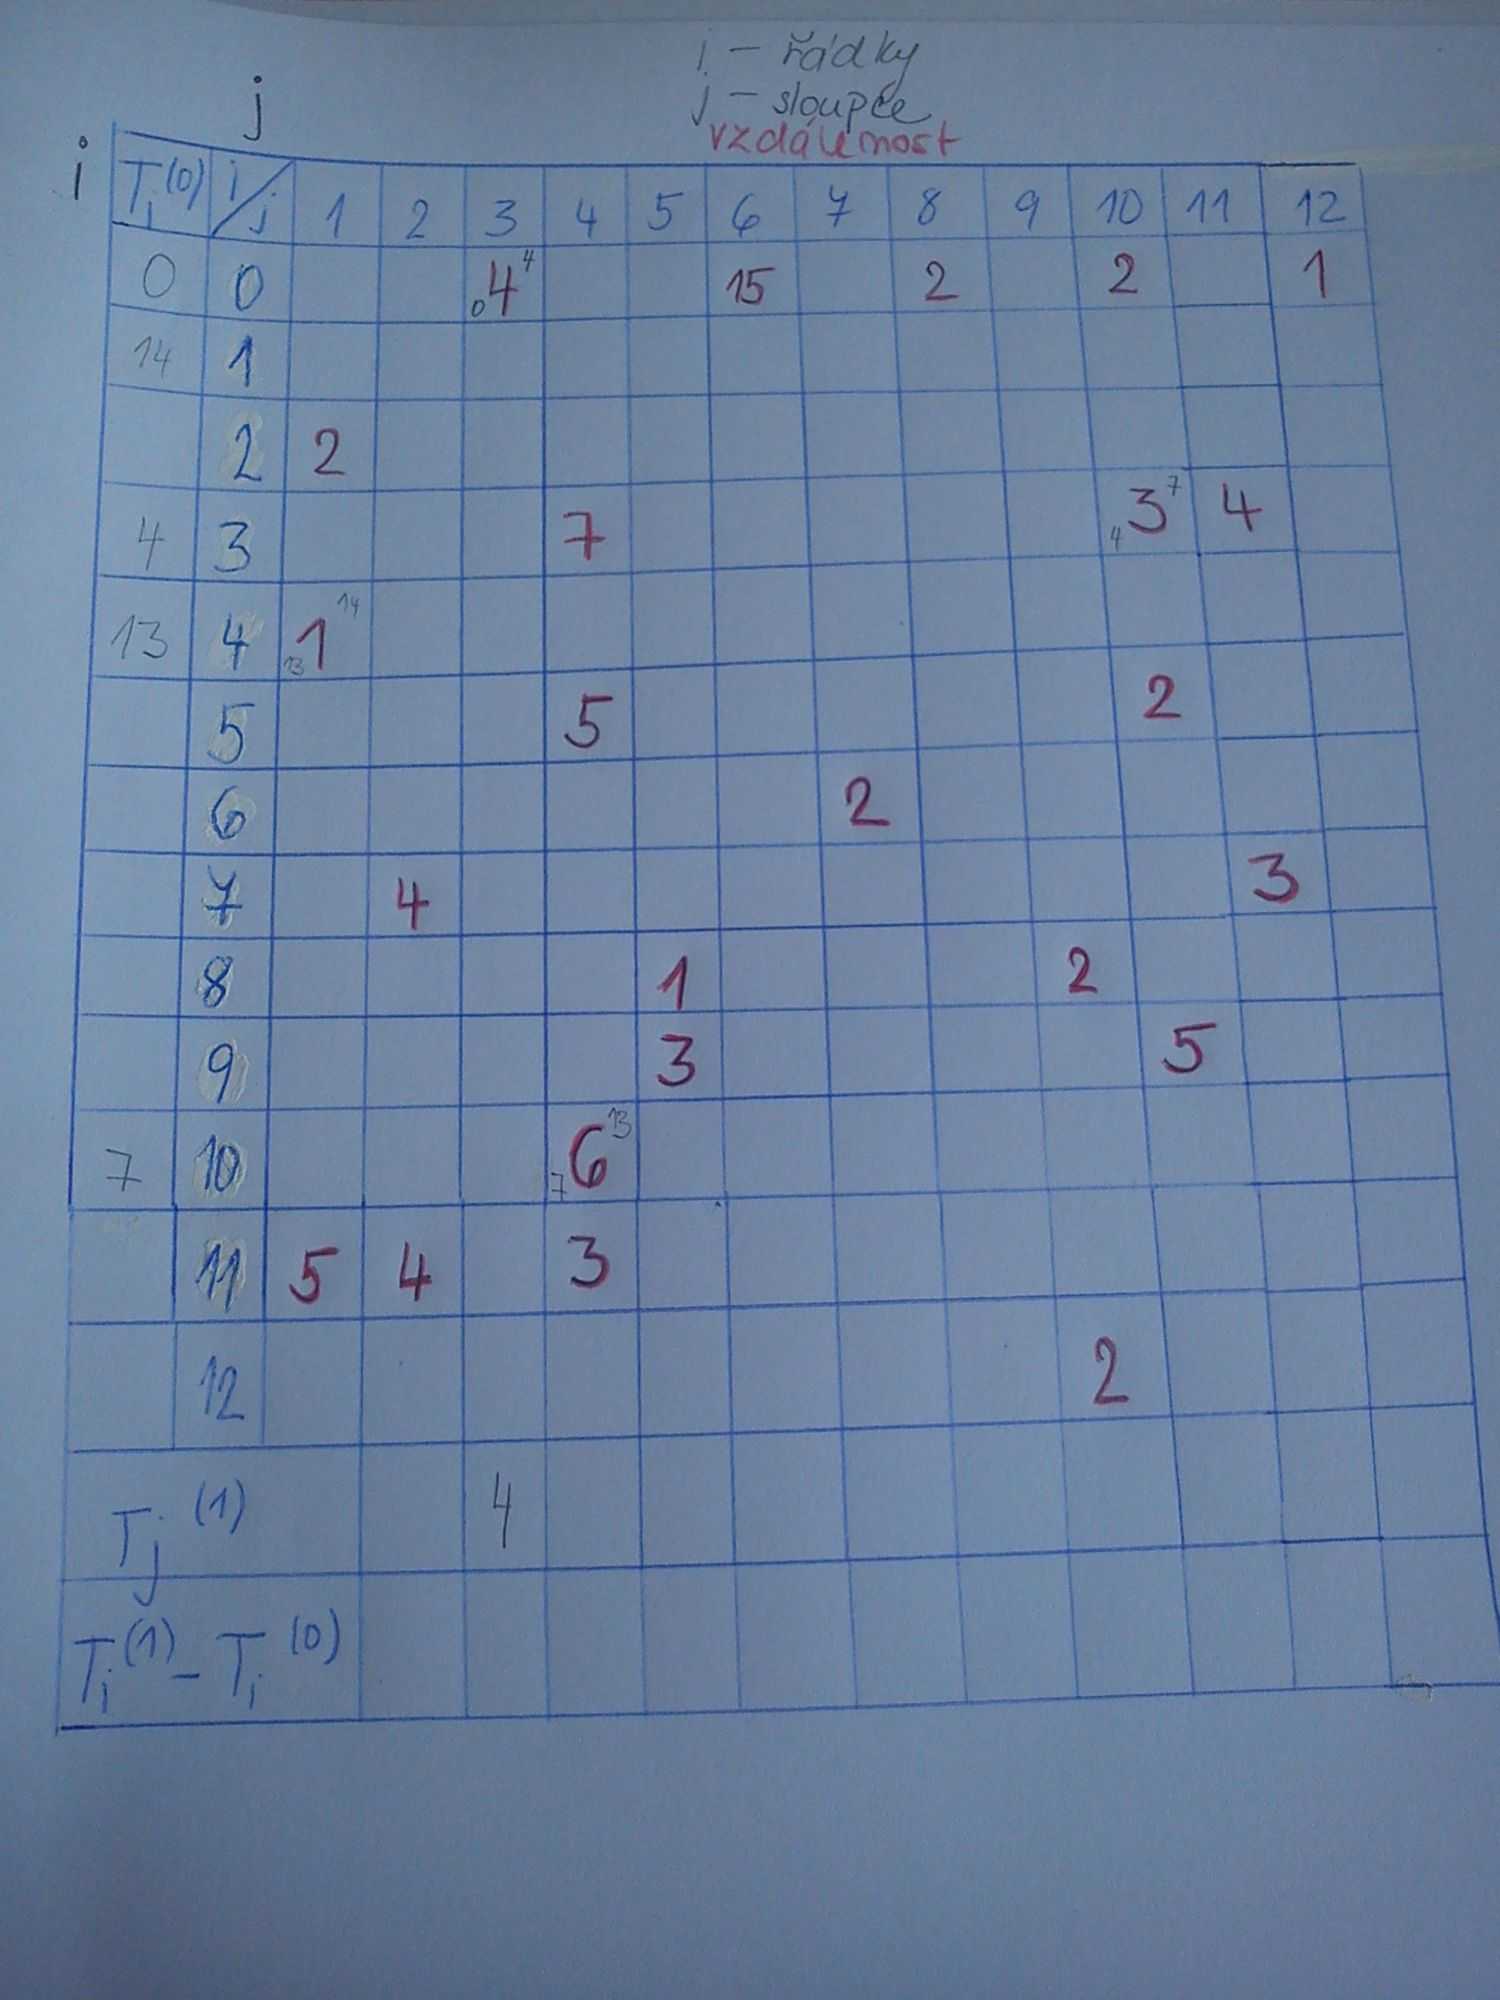 i - řádky
j - sloupce
vzdálenost
j
i
Ti(0) i/j 1 2 3 4 5 6 7 8 9 10 11 12
0 0 0 4 4 15 2 2 1
14 1
2 2
4 3 7 4 3 7 4
13 4 13 1 14
5 5 2
6 2
7 4 3
8 1 2
9 3 5
7 10 7 6 13
11 5 4 3
12 2
Tj(1) 4
Ti(1) - Ti(0)